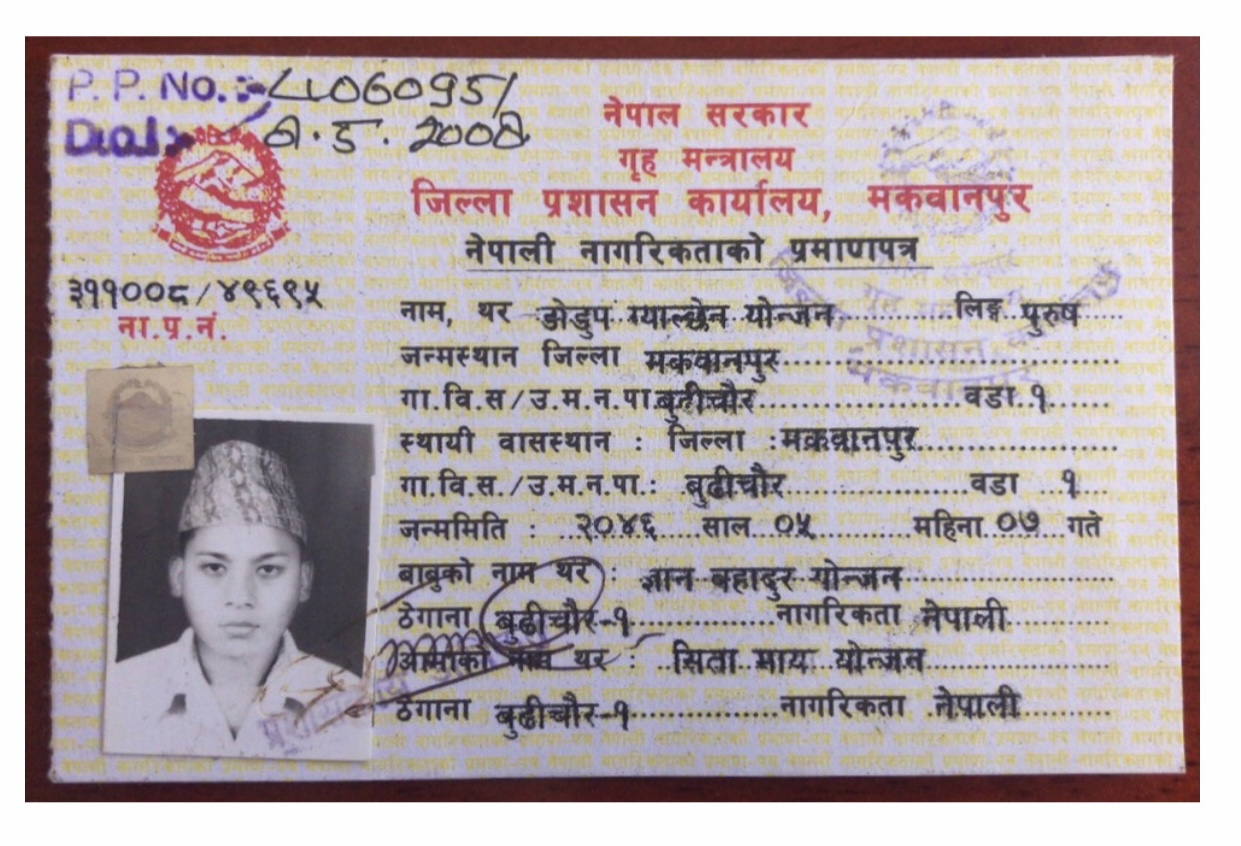 P. P. No. :- 4106095/
D.o.I :- ८.५.2008
नेपाल सरकार
गृह मन्त्रालय
जिल्ला प्रशासन कार्यालय, मकवानपुर
नेपाली नागरिकताको प्रमाणपत्र
३११००८/४९६९५
ना.प्र.नं.
नाम, थर डोडुप ग्याल्छेन योन्जन लिङ्ग पुरुष
जन्मस्थान जिल्ला मकवानपुर
गा.वि.स/उ.म.न.पा. बुढीचौर वडा १
स्थायी वासस्थान : जिल्ला : मकवानपुर
गा.वि.स./उ.म.न.पा.: बुढीचौर वडा १
जन्ममिति : २०४६ साल ०५ महिना ०७ गते
बाबुको नाम थर : ज्ञान बहादुर योन्जन
ठेगाना बुढीचौर-१ नागरिकता नेपाली
आमाको नाम थर : सिता माय योन्जन
ठेगाना बुढीचौर-१ नागरिकता नेपाली